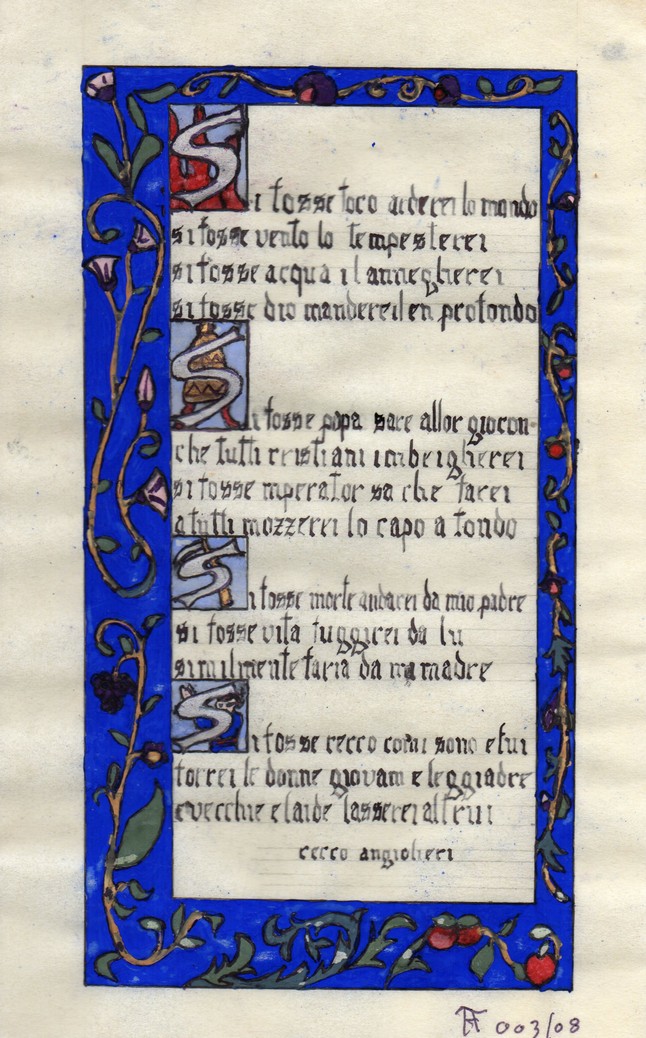 Si fosse foco arderei lo mondo
si fosse vento lo tempesterei
si fosse acqua il annegherei
si fosse dio mandereil en profondo
Si fosse papa sare allor giocon-
che tutti cristiani imbrigherei
si fosse mperator sa che farei
a tutti mozzerei lo capo a tondo
Si fosse morte andarei da mio padre
si fosse vita fuggirei da lu
similmente faria da ma madre
Si fosse cecco comi sono e fui
torrei le donne giovani e leggiadre
e vecchie e laide lasserei altrui
cecco angiolieri
003/08